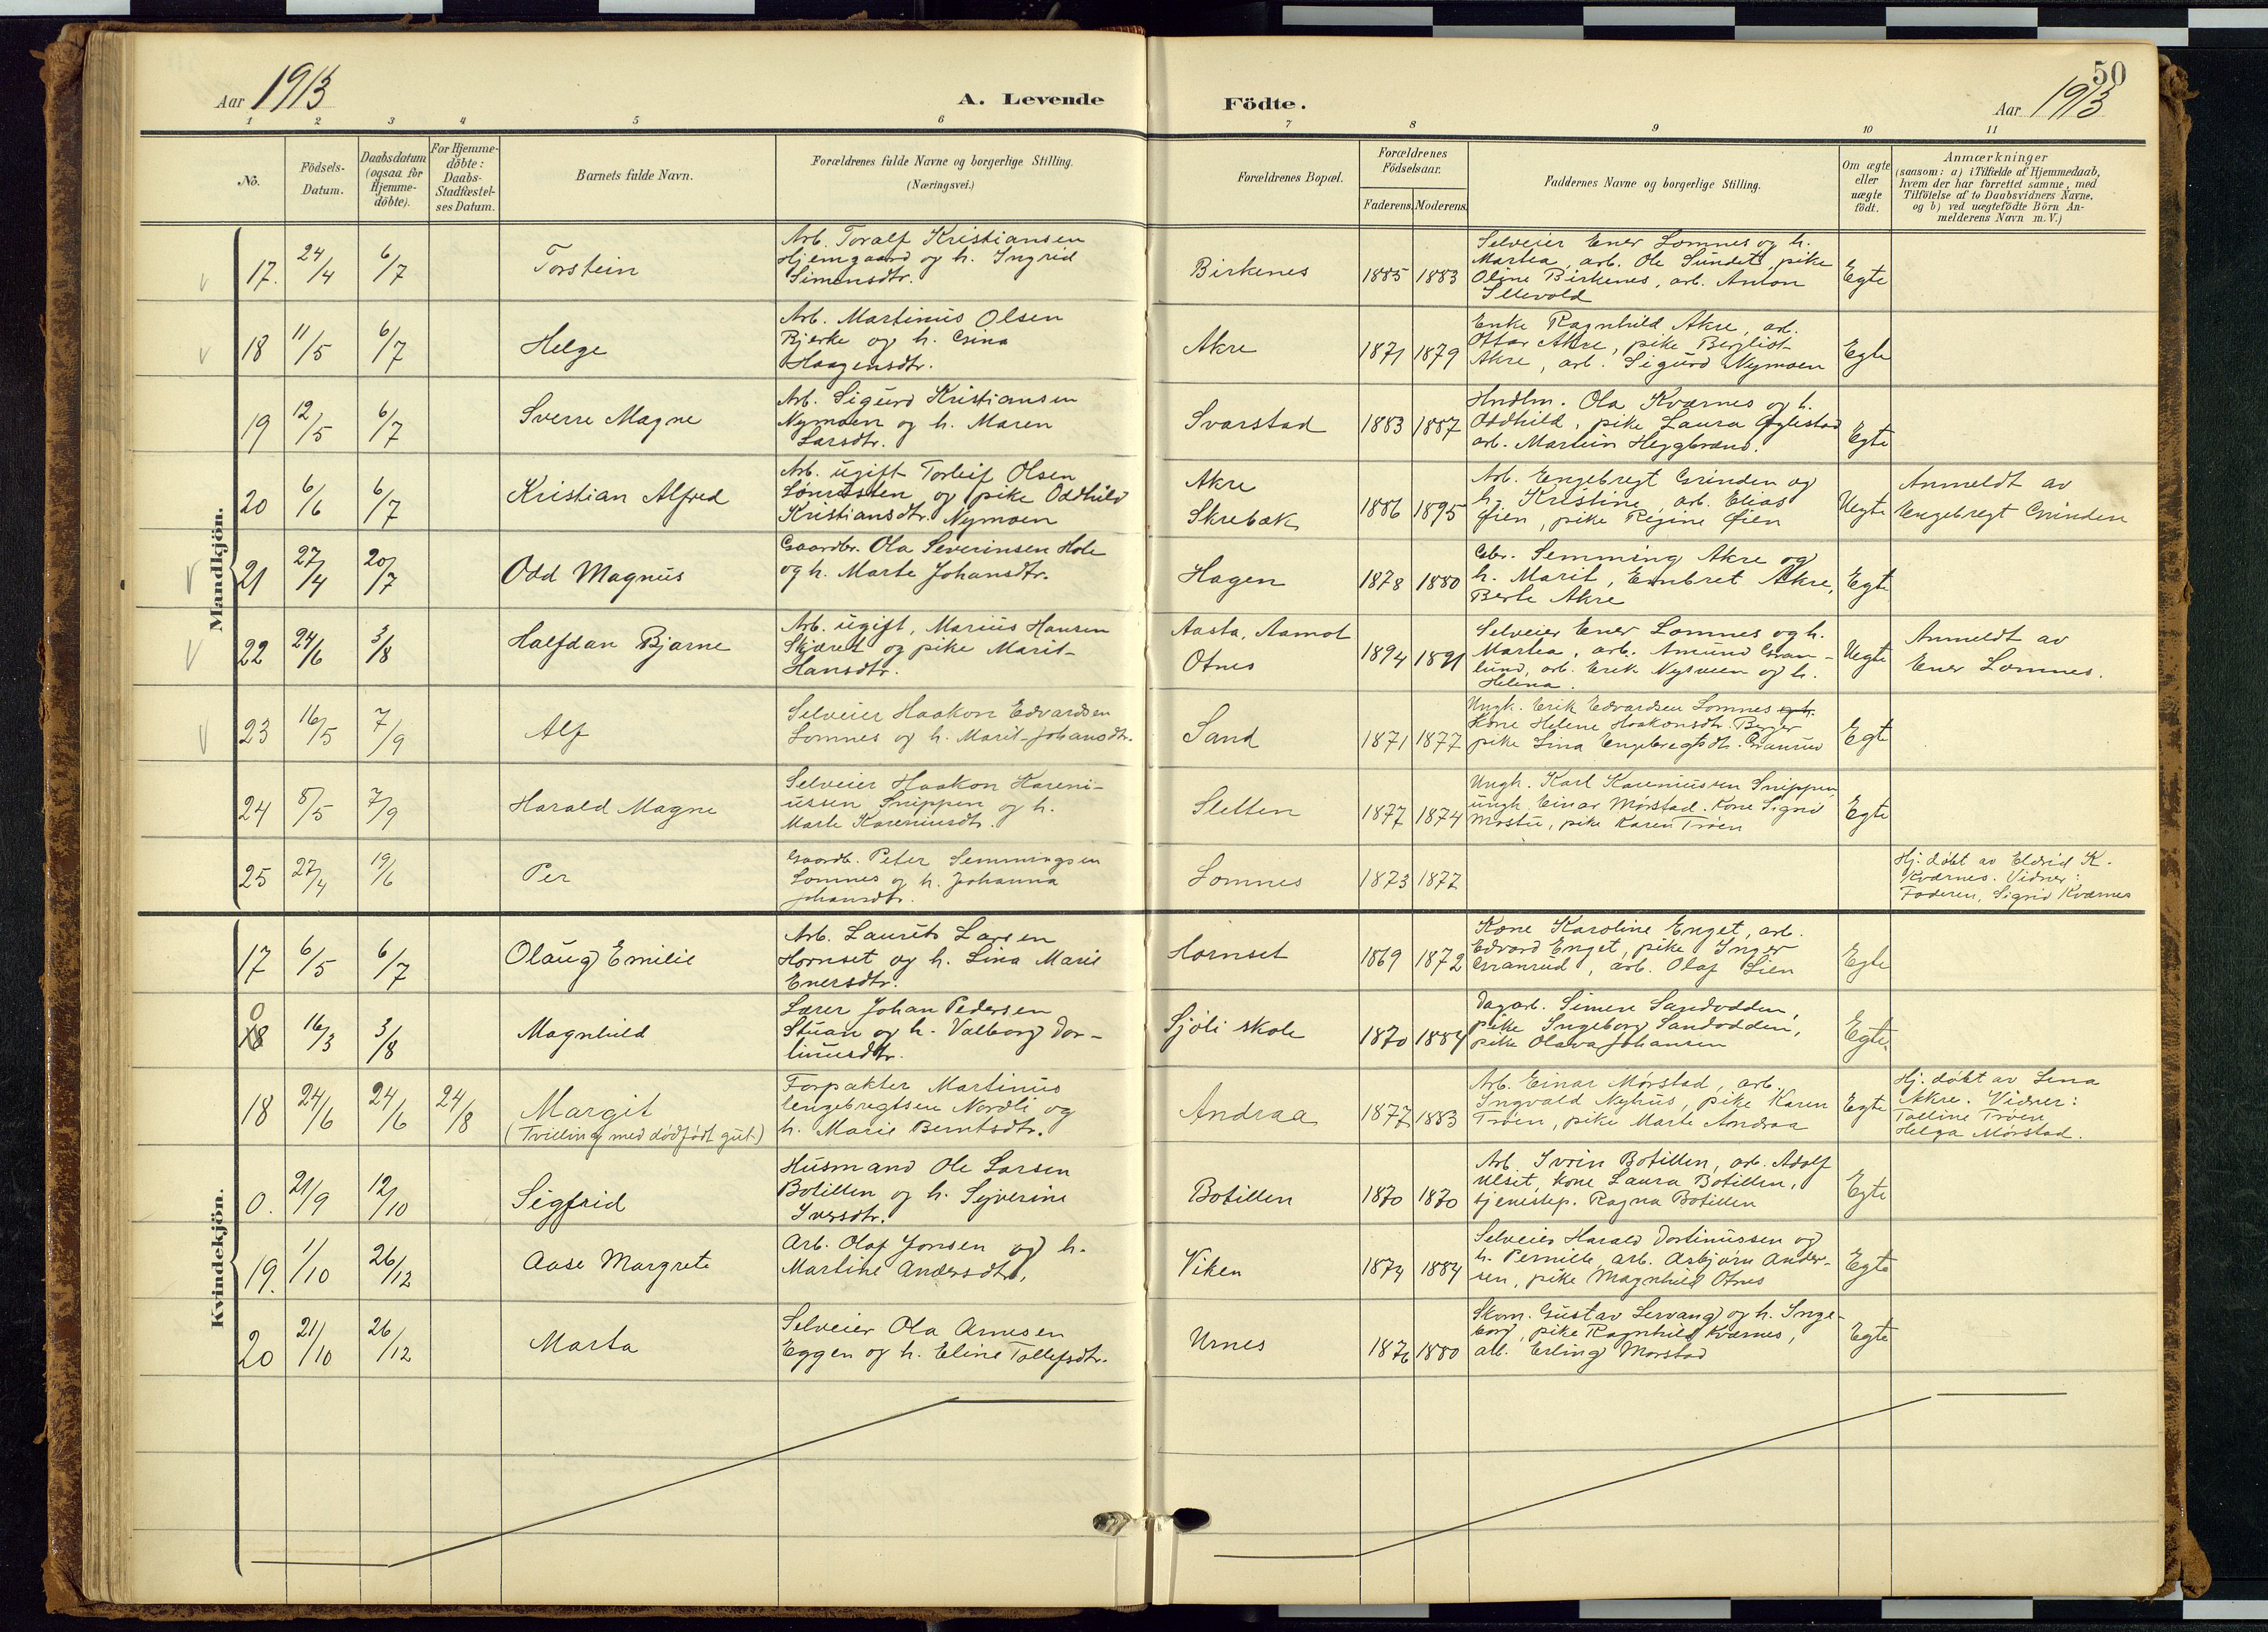 Aar 1913
A. Levende
Födte.
50
Aar 1913
1 2 3 4 5 6 7 8 9 10 11
No.
Födsels-
Datum.
Daabsdatum
(ogsaa for
Hjemme-
döbte).
For Hjemme-
döbte:
Daabs-
Stadfæstel-
ses Datum.
Barnets fulde Navn.
Forældrenes fulde Navne og borgerlige Stilling.
(Næringsvei.)
Forældrenes Bopæl.
Forældrenes
Födselsaar.
Faderens. Moderens.
Faddernes Navne og borgerlige Stilling.
Om ægte
eller
uægte
födt.
Anmærkninger
(saasom: a) i Tilfælde af Hjemmedaab,
hvem der har forrettet samme, med
Tilföielse af to Daabsvidners Navne,
og b) ved uægtefödte Börn An-
melderens Navn m. V.)
Mandkjön.
17. 24/4 6/7 Torstein
Arb. Toralf Kristiansen
Hjemgaard og h. Ingrid
Simensdtr.
Birkenes 1885 1883
Selveier Ener Lomnes og h.
Martea, arb. Ole Sundet, pike
Oline Birkenes, arb. Anton
Sllevold
Egte
18 11/5 6/7 Helge
Arb. Martinus Olsen
Bjerke og h. Gina
Haagensdtr.
Akre 1871 1879
Enke Ragnhild Akre, arb.
Ottar Akre, pike Bergliot
Akre, arb. Sigurd Nymoen
Egte
19 12/5 6/7 Sverre Magne
Arb. Sigurd Kristiansen
Nymoen og h. Maren
Larsdtr.
Svarstad 1883 1887
Hndlm. Ola Kværnes og h.
Oddhild, pike Laura
arb. Martin Heggbrend.
Egte
20 6/6 6/7 Kristian Alfred
Arb. ugift Torleif Olsen
og pike Oddhild
Kristiansdtr. Nymoen
Akre
Skrebæk
1886 1895
Arb. Engebregt Grinden og
h. Kristine, arb. Elias
Øien, pike Regine Øien
Uegte
Anmeldt av
Engebregt Grinden
21 27/4 20/7 Odd Magnus
Gaardbr. Ola Severinsen Hole
og h. Marte Johansdtr.
Hagen 1878 1880
Gbr. Semming Akre og
h. Marit, Embret Akre,
Berte Akre
Egte
22 24/6 3/8 Halfdan Bjarne
Arb. ugift, Marius Hansen
Skjæret og pike Marit
Hansdtr.
Aasta, Aamot
Otnes
1894 1891
Selveier Ener Lomnes og h.
Martea, arb. Amund Gran-
lund, arb. Erik Nysveen og h.
Helena.
Uegte
Anmeldt av
Ener Lomnes.
23 16/5 7/9 Alf
Selveier Haakon Edvardsen
Lomnes og h. Marit Johansdtr.
Sand 1871 1877
Ungk. Erik Edvardsen Lomnes og h.
Kone Helene Haakonsdtr. Berger
pike Lina Engebregtsdtr. Granrud
Egte
24 8/5 7/9 Harald Magne
Selveier Haakon Kareni-
ussen Snippen og h.
Marte Kareniusdtr.
Sletten 1877 1874
Ungk. Karl Kareniussen Snippen,
ungk. Einar Mørstad. Kone Signe
Møstu, pike Karen Trøen
Egte
25 27/4 19/6 Per
Gaardb. Peter Semmingsen
Lomnes og h. Johanna
Johansdtr.
Lomnes 1873 1877
Hj. døbt av Eldrid K.
Kværnes. Vidner:
Faderen, Sigrid Kværnes
Kvindekjön.
17 6/5 6/7 Olaug Emilie
Arb. Laurits Larsen
Hornset og h. Lina Marie
Enersdtr.
Hornset 1869 1872
Kone Karoline Enget, arb.
Edvard Enget, pike Inger
Granrud, arb. Olaf Lien
Egte
0
18 16/3 3/8 Magnhild
Lærer Johan Pedersen
Stuan og h. Valborg Dor-
tinusdtr.
Sjøli skole 1870 1884
Dagarb. Simen Sandodden,
pike Ingeborg Sandodden,
pike Olava Johansen
Egte.
18 24/6 24/6 24/8 Margit
(Tvilling med dødfødt gut.)
Forpakter Martinus
Engebregtsen Nordli og
h. Marie Berntsdtr.
Andraa 1877 1883
Arb. Einar Mørstad, arb.
Ingvald Nyhus, pike Karen
Trøen, pike Marte Andraa
Egte
Hj. døbt av Lina
Akre. Vidner:
Talline Trøen
Helga Mørstad.
0. 21/9 12/10 Sigfrid
Husmand Ole Larsen
Botillen og h. Syverine
Iversdtr.
Botillen 1870 1870
Arb. Iverin Botillen, arb. Adolf
Ulset, kone Laura Botillen,
tjenestep. Ragna Botillen
Egte
19. 1/10 26/12 Aase Margrete
Arb. Olaf Jonsen og h.
Martine Andersdtr.
Viken 1874 1884
Selveier Harald Dortinussen og
h. Pernille, arb. Asbjørn Ander-
sen, pike Magnhild Otnes
Egte
20 21/10 26/12 Marta
Selveier Ola Arnesen
Eggen og h. Eline Tollefsdtr.
Urnes 1876 1880
Skom. Gustav Lervang og h. Inge-
borg, pike Ragnhild Kværnes,
arb. Erling Mørstad
Egte